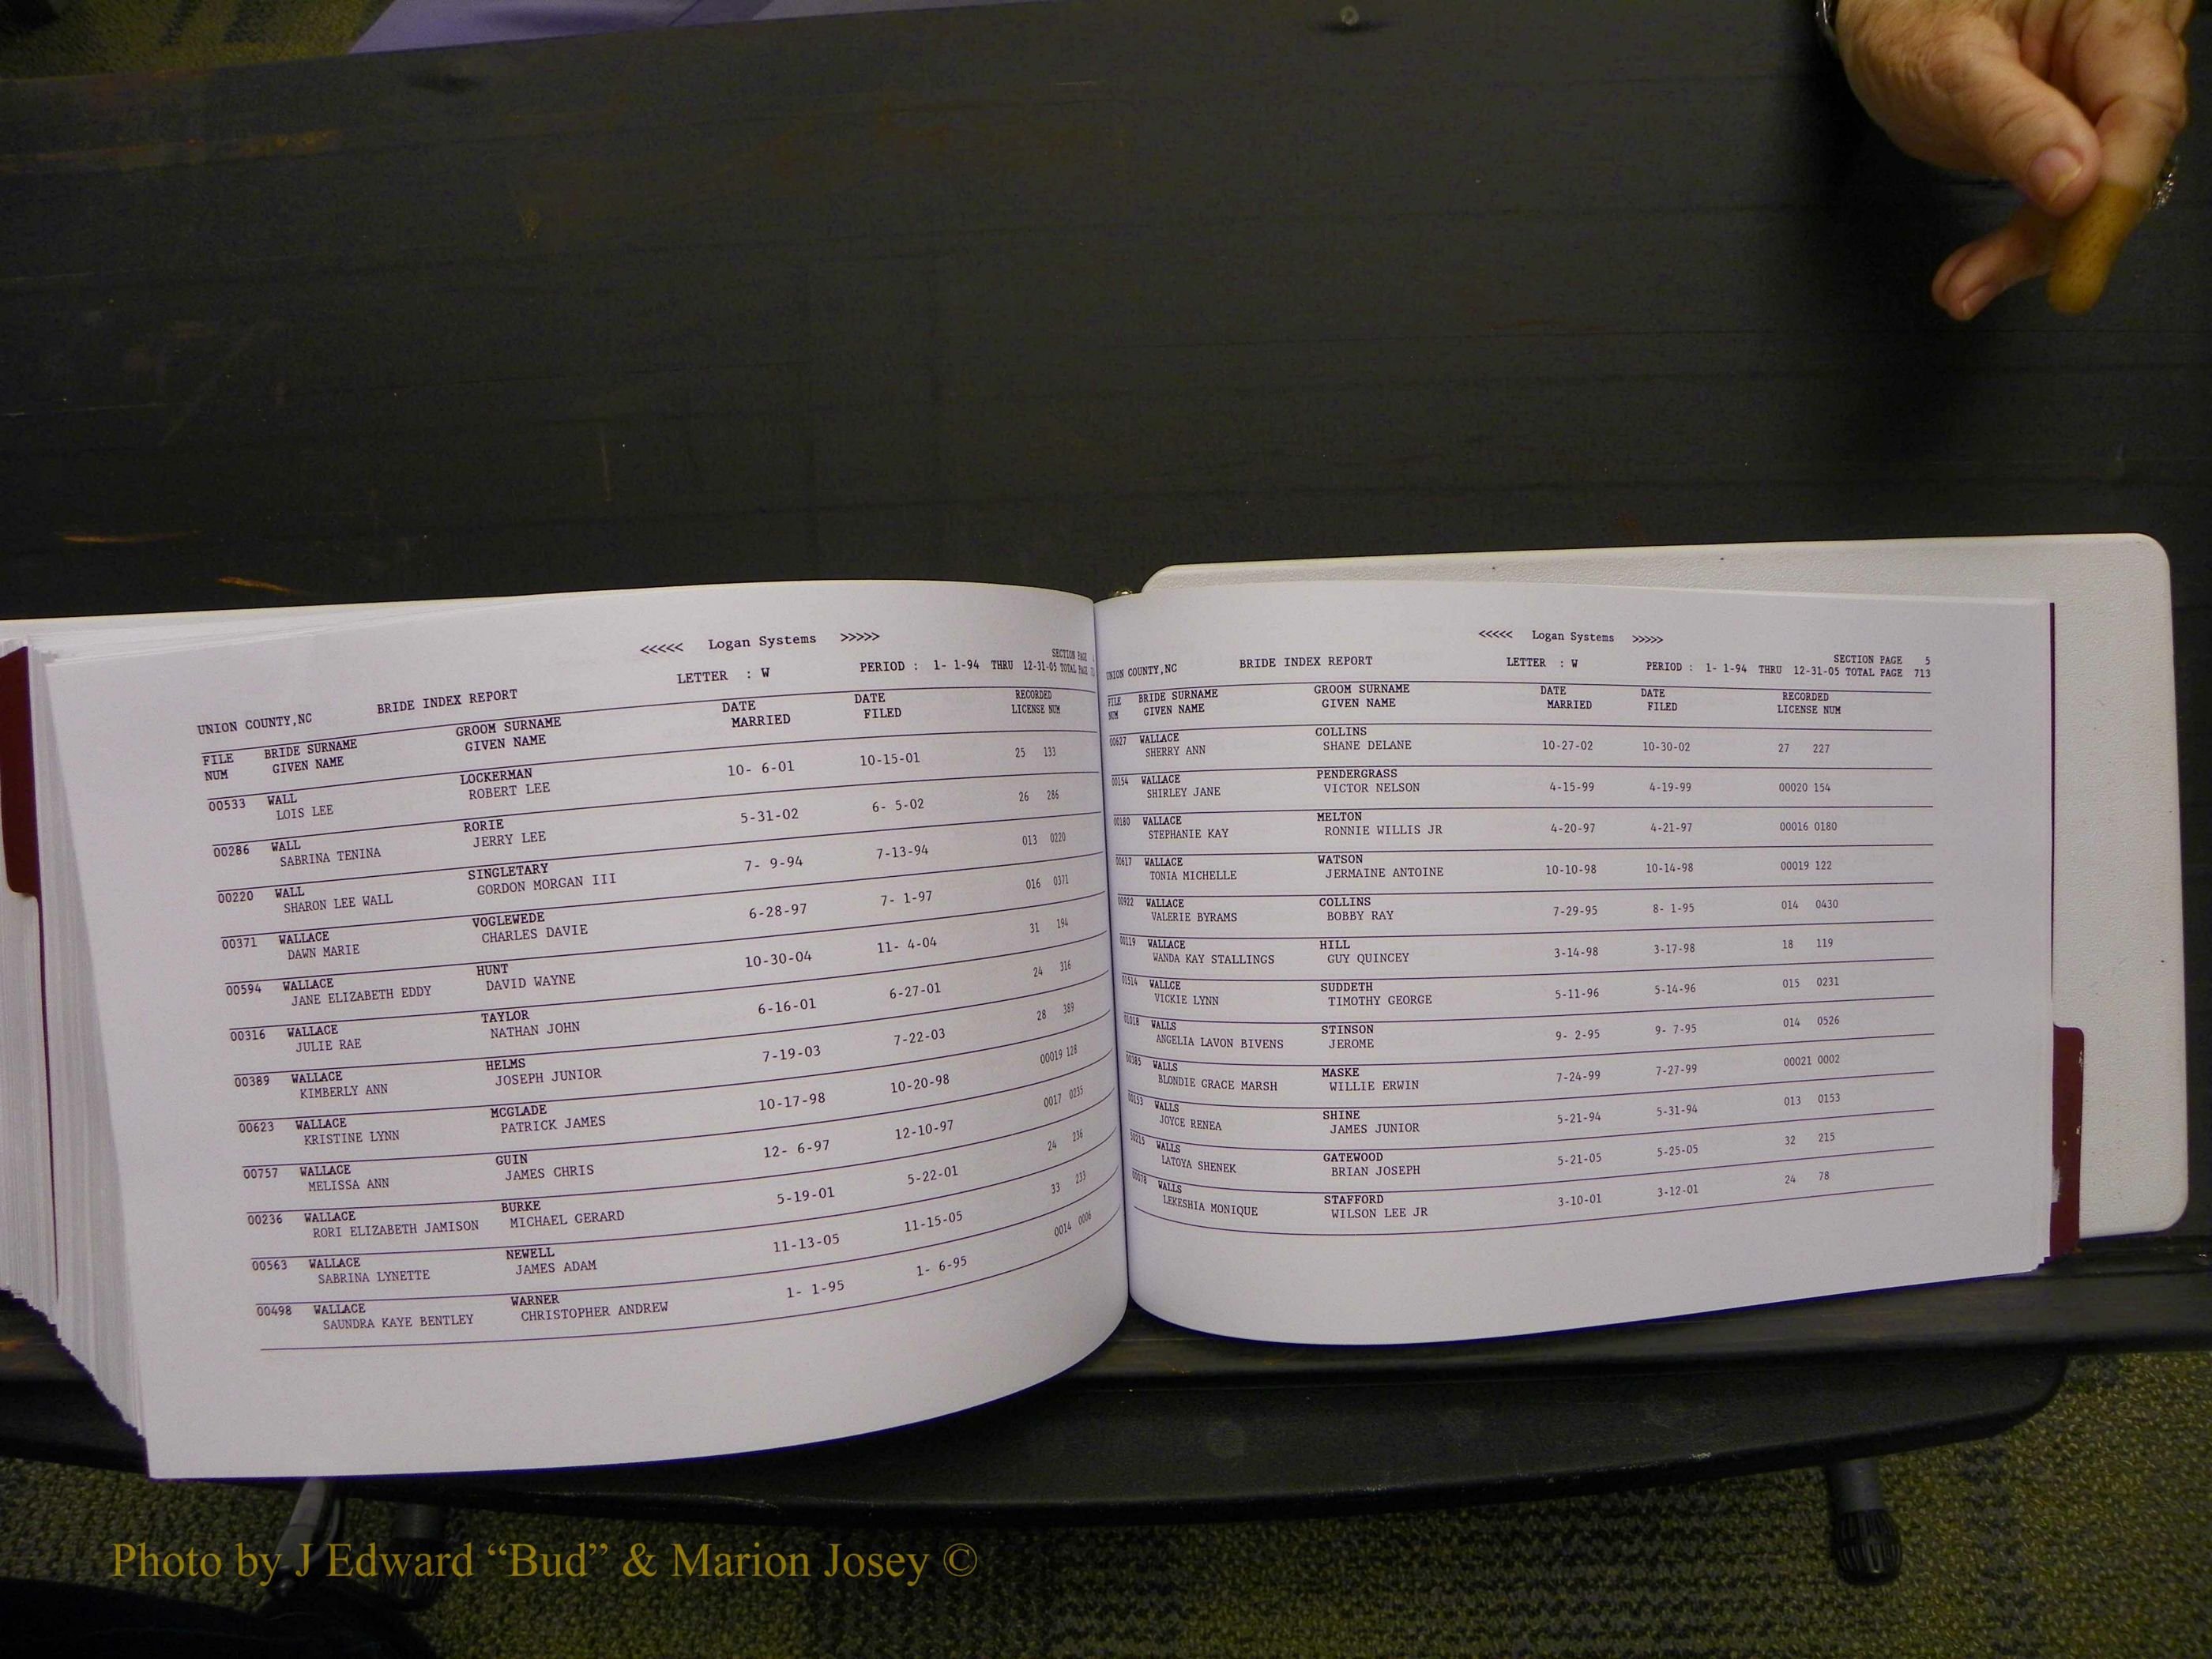 <<<<< Logan Systems >>>>>
UNION COUNTY,NC BRIDE INDEX REPORT LETTER : W PERIOD : 1- 1-94 THRU 12-31-05 SECTION PAGE
TOTAL PAGE
FILE BRIDE SURNAME GROOM SURNAME DATE DATE RECORDED
NUM GIVEN NAME GIVEN NAME MARRIED FILED LICENSE NUM
00533 WALL LOCKERMAN 10- 6-01 10-15-01 25 133
LOIS LEE ROBERT LEE
00286 WALL RORIE 5-31-02 6- 5-02 26 286
SABRINA TENINA JERRY LEE
00220 WALL SINGLETARY 7- 9-94 7-13-94 013 0220
SHARON LEE WALL GORDON MORGAN III
00371 WALLACE VOGLEWEDE 6-28-97 7- 1-97 016 0371
DAWN MARIE CHARLES DAVIE
00594 WALLACE HUNT 10-30-04 11- 4-04 31 194
JANE ELIZABETH EDDY DAVID WAYNE
00316 WALLACE TAYLOR 6-16-01 6-27-01 24 316
JULIE RAE NATHAN JOHN
00389 WALLACE HELMS 7-19-03 7-22-03 28 389
KIMBERLY ANN JOSEPH JUNIOR
00623 WALLACE MCGLADE 10-17-98 10-20-98 00019 128
KRISTINE LYNN PATRICK JAMES
00757 WALLACE GUIN 12- 6-97 12-10-97 0017 0235
MELISSA ANN JAMES CHRIS
00236 WALLACE BURKE 5-19-01 5-22-01 24 236
RORI ELIZABETH JAMISON MICHAEL GERARD
00563 WALLACE NEWELL 11-13-05 11-15-05 33 233
SABRINA LYNETTE JAMES ADAM
00498 WALLACE WARNER 1- 1-95 1- 6-95 0014 0006
SAUNDRA KAYE BENTLEY CHRISTOPHER ANDREW
<<<<< Logan Systems >>>>>
UNION COUNTY,NC BRIDE INDEX REPORT LETTER : W PERIOD : 1- 1-94 THRU 12-31-05 SECTION PAGE 5
TOTAL PAGE 713
FILE BRIDE SURNAME GROOM SURNAME DATE DATE RECORDED
NUM GIVEN NAME GIVEN NAME MARRIED FILED LICENSE NUM
00627 WALLACE COLLINS 10-27-02 10-30-02 27 227
SHERRY ANN SHANE DELANE
00154 WALLACE PENDERGRASS 4-15-99 4-19-99 00020 154
SHIRLEY JANE VICTOR NELSON
00180 WALLACE MELTON 4-20-97 4-21-97 00016 0180
STEPHANIE KAY RONNIE WILLIS JR
00617 WALLACE WATSON 10-10-98 10-14-98 00019 122
TONIA MICHELLE JERMAINE ANTOINE
00922 WALLACE COLLINS 7-29-95 8- 1-95 014 0430
VALERIE BYRAMS BOBBY RAY
00119 WALLACE HILL 3-14-98 3-17-98 18 119
WANDA KAY STALLINGS GUY QUINCEY
01514 WALLCE SUDDETH 5-11-96 5-14-96 015 0231
VICKIE LYNN TIMOTHY GEORGE
01018 WALLS STINSON 9- 2-95 9- 7-95 014 0526
ANGELIA LAVON BIVENS JEROME
00385 WALLS MASKE 7-24-99 7-27-99 00021 0002
BLONDIE GRACE MARSH WILLIE ERWIN
00153 WALLS SHINE 5-21-94 5-31-94 013 0153
JOYCE RENEA JAMES JUNIOR
WALLS GATEWOOD 5-21-05 5-25-05 32 215
LATOYA SHENEK BRIAN JOSEPH
00078 WALLS STAFFORD 3-10-01 3-12-01 24 78
LEKESHIA MONIQUE WILSON LEE JR
Photo by J Edward “Bud” & Marion Josey ©